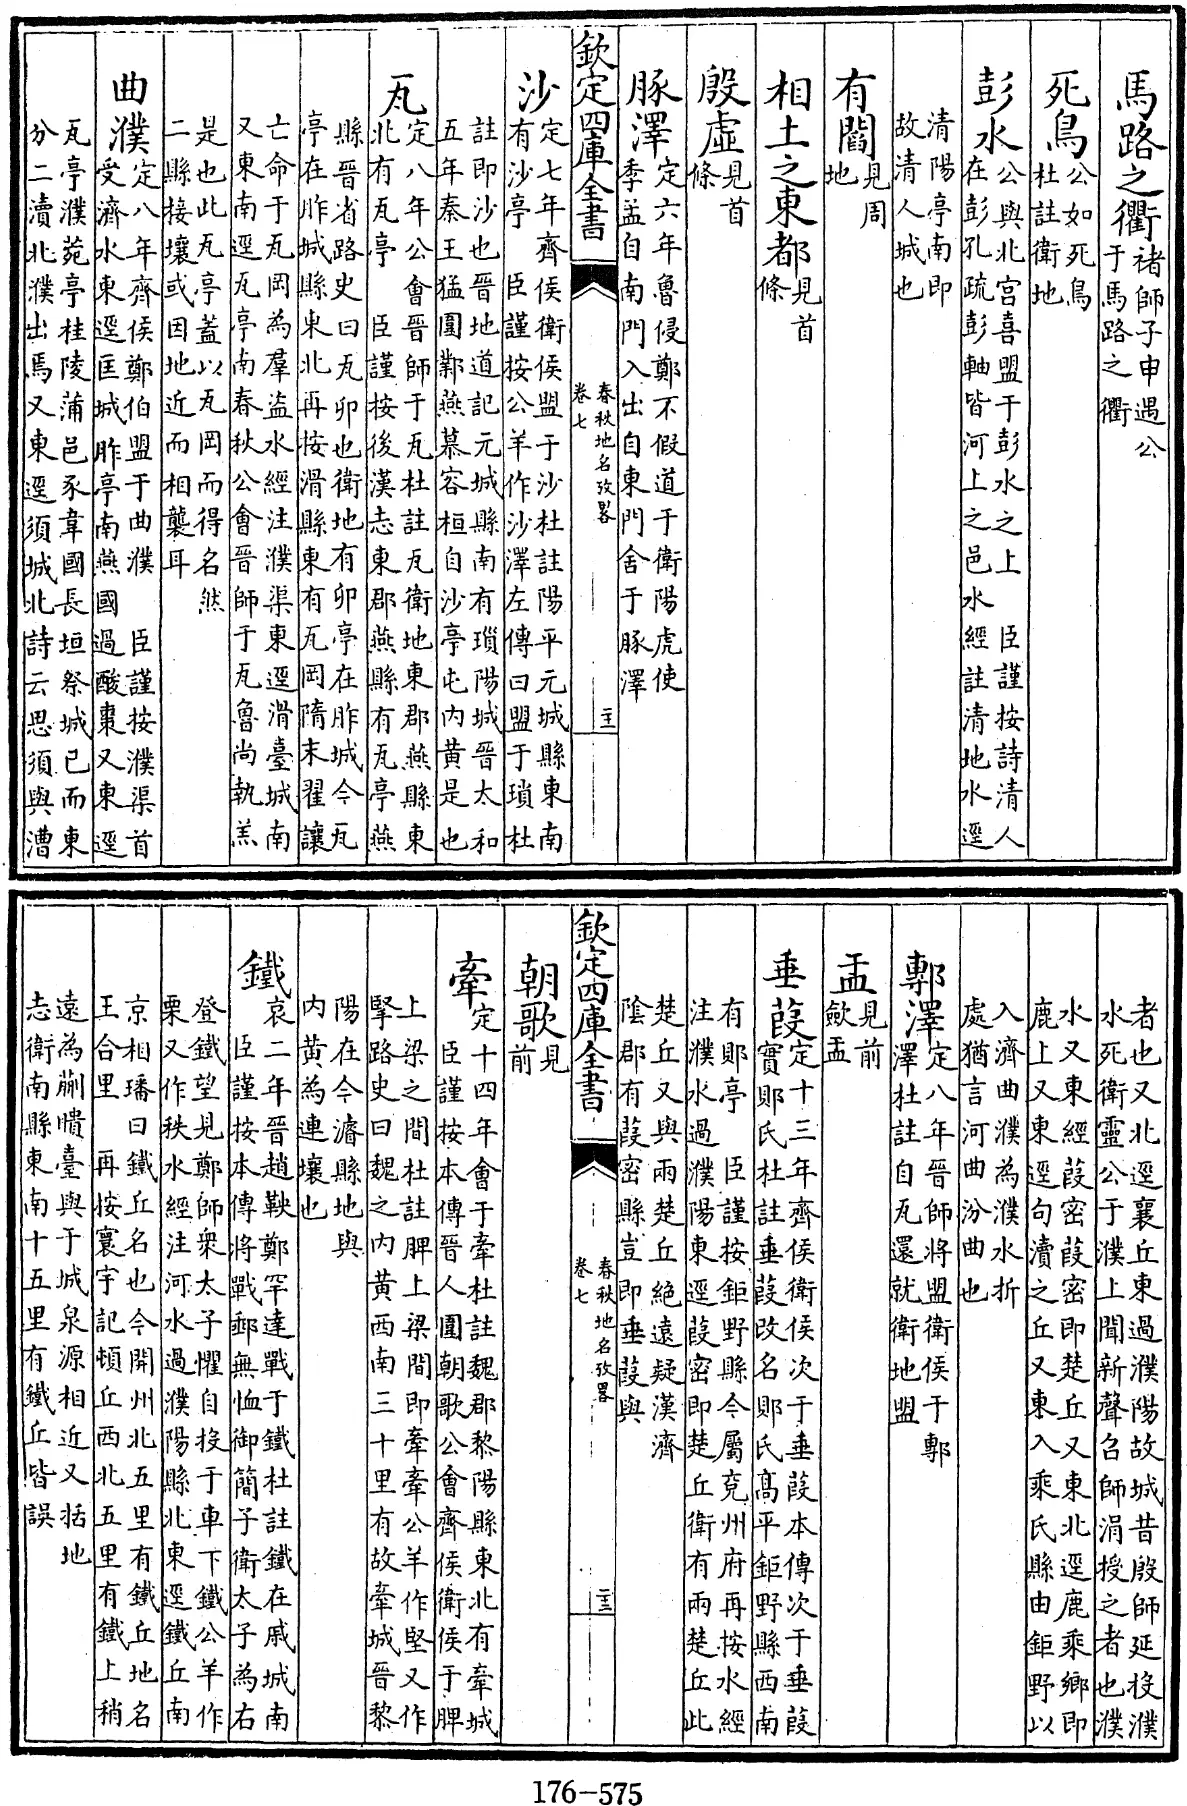 馬路之衢褚師子申遇公
于馬路之衢
死鳥公如死鳥
杜註衛地
彭水公與北宮喜盟于彭水之上 臣謹按詩清人
在彭孔疏彭軸皆河上之邑水經註清地水逕
清陽亭南即
故清人城也
有閻見周
地
相土之東都見首
條
殷虛見首
條
豚澤定六年魯侵鄭不假道于衛陽虎使
季孟自南門入出自東門舍于豚澤
欽定四庫全書
春秋地名攷畧
卷七
二十二
沙定七年齊侯衛侯盟于沙杜註陽平元城縣東南
有沙亭 臣謹按公羊作沙澤左傳曰盟于瑣杜
註即沙也晉地道記元城縣南有瑣陽城晉太和
五年秦王猛圍鄴燕慕容桓自沙亭屯內黃是也
瓦定八年公會晉師于瓦杜註瓦衛地東郡燕縣東
北有瓦亭 臣謹按後漢志東郡燕縣有瓦亭燕
縣晉省路史曰瓦卯也衛地有卯亭在胙城今瓦
亭在胙城縣東北再按滑縣東有瓦岡隋末翟讓
亡命于瓦岡為羣盜水經注濮渠東逕滑臺城南
又東南逕瓦亭南春秋公會晉師于瓦魯尚執羔
是也此瓦亭蓋以瓦岡而得名然
二縣接壤或因地近而相襲耳
曲濮定八年齊侯鄭伯盟于曲濮 臣謹按濮渠首
受濟水東逕匡城胙亭南燕國過酸棗又東逕
瓦亭濮菀亭桂陵蒲邑豕韋國長垣祭城已而東
分二瀆北濮出焉又東逕須城北詩云思須與漕
者也又北逕襄丘東過濮陽故城昔殷師延投濮
水死衛靈公于濮上聞新聲召師涓授之者也濮
水又東經葭密葭密即楚丘又東北逕鹿乘鄉即
鹿上又東逕句瀆之丘又東入乘氏縣由鉅野以
入濟曲濮為濮水折
處猶言河曲汾曲也
鄟澤定八年晉師將盟衛侯于鄟
澤杜註自瓦還就衛地盟
盂見前
歛盂
垂葭定十三年齊侯衛侯次于垂葭本傳次于垂葭
實郹氏杜註垂葭改名郹氏高平鉅野縣西南
有郹亭 臣謹按鉅野縣今屬兗州府再按水經
注濮水過濮陽東逕葭密即楚丘衛有兩楚丘此
楚丘又與兩楚丘絕遠疑漢濟
陰郡有葭密縣豈即垂葭與
欽定四庫全書
春秋地名攷畧
卷七
二十三
朝歌見
前
牽定十四年會于牽杜註魏郡黎陽縣東北有牽城
臣謹按本傳晉人圍朝歌公會齊侯衛侯于脾
上梁之間杜註脾上梁間即牽牽公羊作堅又作
掔路史曰魏之內黃西南三十里有故牽城晉黎
陽在今濬縣地與
內黃為連壤也
鐵哀二年晉趙鞅鄭罕達戰于鐵杜註鐵在戚城南
臣謹按本傳將戰郵無恤御簡子衛太子為右
登鐵望見鄭師衆太子懼自投于車下鐵公羊作
栗又作秩水經注河水過濮陽縣北東逕鐵丘南
京相璠曰鐵丘名也今開州北五里有鐵丘地名
王合里 再按寰宇記頓丘西北五里有鐵上稍
遠為蒯聵臺與于城泉源相近又括地
志衛南縣東南十五里有鐵丘皆誤
176-575